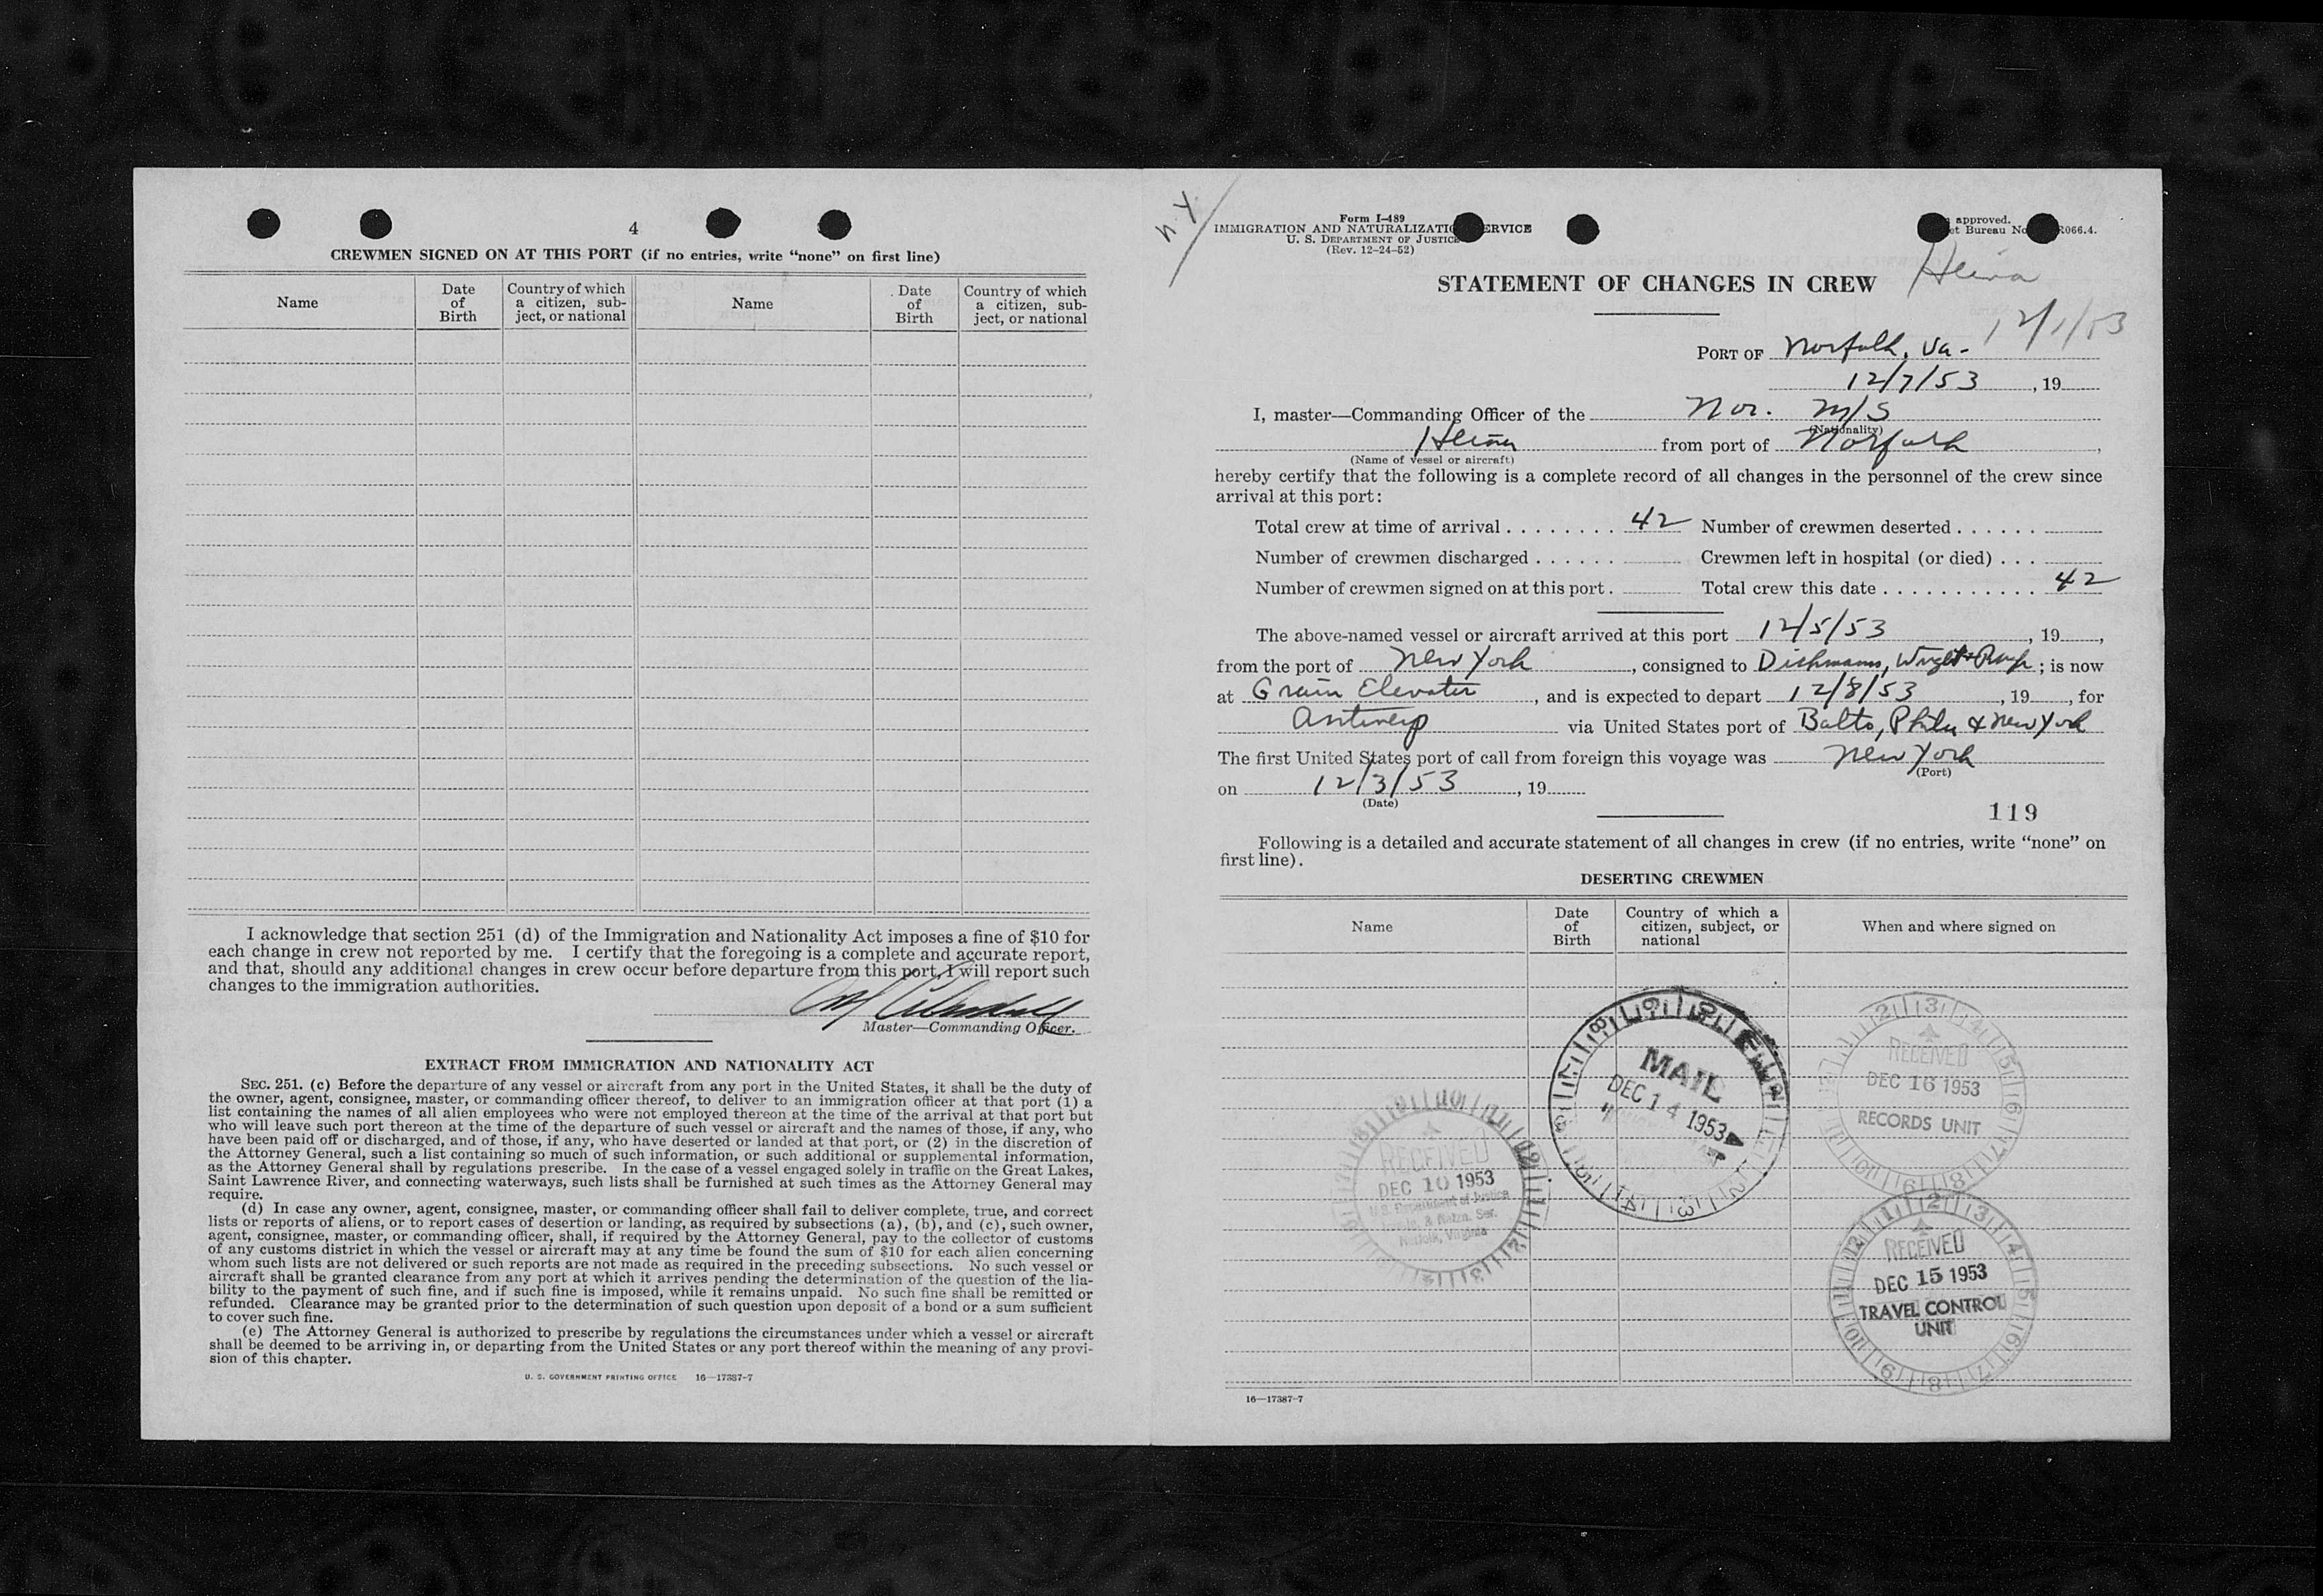 4
CREWMEN SIGNED ON AT THIS PORT (if no entries, write “none” on first line)
Name
Date of Birth
Country of which a citizen, subject, or national
Name
Date of Birth
Country of which a citizen, subject, or national
I acknowledge that section 251 (d) of the Immigration and Nationality Act imposes a fine of $10 for
each change in crew not reported by me. I certify that the foregoing is a complete and accurate report,
and that, should any additional changes in crew occur before departure from this port, I will report such
changes to the immigration authorities.
Master—Commanding Officer.
EXTRACT FROM IMMIGRATION AND NATIONALITY ACT
SEC. 251. (c) Before the departure of any vessel or aircraft from any port in the United States, it shall be the duty of
the owner, agent, consignee, master, or commanding officer thereof, to deliver to an immigration officer at that port (1) a
list containing the names of all alien employees who were not employed thereon at the time of the arrival at that port but
who will leave such port thereon at the time of the departure of such vessel or aircraft and the names of those, if any, who
have been paid off or discharged, and of those, if any, who have deserted or landed at that port, or (2) in the discretion of
the Attorney General, such a list containing so much of such information, or such additional or supplemental information,
as the Attorney General shall by regulations prescribe. In the case of a vessel engaged solely in traffic on the Great Lakes,
Saint Lawrence River, and connecting waterways, such lists shall be furnished at such times as the Attorney General may
require.
(d) In case any owner, agent, consignee, master, or commanding officer shall fail to deliver complete, true, and correct
lists or reports of aliens, or to report cases of desertion or landing, as required by subsections (a), (b), and (c), such owner,
agent, consignee, master, or commanding officer, shall, if required by the Attorney General, pay to the collector of customs
of any customs district in which the vessel or aircraft may at any time be found the sum of $10 for each alien concerning
whom such lists are not delivered or such reports are not made as required in the preceding subsections. No such vessel or
aircraft shall be granted clearance from any port at which it arrives pending the determination of the question of the lia-
bility to the payment of such fine, and if such fine is imposed, while it remains unpaid. No such fine shall be remitted or
refunded. Clearance may be granted prior to the determination of such question upon deposit of a bond or a sum sufficient
to cover such fine.
(e) The Attorney General is authorized to prescribe by regulations the circumstances under which a vessel or aircraft
shall be deemed to be arriving in, or departing from the United States or any port thereof within the meaning of any provi-
sion of this chapter.
U. S. GOVERNMENT PRINTING OFFICE 16—17387-7
N.Y
Form I-489
IMMIGRATION AND NATURALIZATIO ERVICE
U. S. DEPARTMENT OF JUSTICE
(Rev. 12-24-52)
approved.
et Bureau No R066.4.
STATEMENT OF CHANGES IN CREW
Heina
12/1/53
PORT OF Norfolk, Va.
12/7/53, 19
I, master—Commanding Officer of the Nor. M/S
(Nationality)
Heina from port of Norfolk,
(Name of vessel or aircraft)
hereby certify that the following is a complete record of all changes in the personnel of the crew since
arrival at this port:
Total crew at time of arrival . . . . . . . . 42 Number of crewmen deserted . . . . . .
Number of crewmen discharged . . . . . . Crewmen left in hospital (or died) . . .
Number of crewmen signed on at this port . Total crew this date . . . . . . . . . . . 42
The above-named vessel or aircraft arrived at this port 12/5/53, 19,
from the port of New York, consigned to Dichmann, Wright & Pugh; is now
at Grain Elevator, and is expected to depart 12/8/53, 19, for
Antwerp via United States port of Balto, Phila & New York
The first United States port of call from foreign this voyage was New York
(Port)
on 12/3/53, 19
(Date)
119
Following is a detailed and accurate statement of all changes in crew (if no entries, write “none” on
first line).
DESERTING CREWMEN
Name
Date of Birth
Country of which a citizen, subject, or national
When and where signed on
MAIL
DEC 14 1953
RECEIVED
DEC 16 1953
RECORDS UNIT
RECEIVED
DEC 10 1953
U.S. Department of Justice
Immig. & Natzn. Ser.
Norfolk, Virginia
RECEIVED
DEC 15 1953
TRAVEL CONTROL
UNIT
16—17387-7